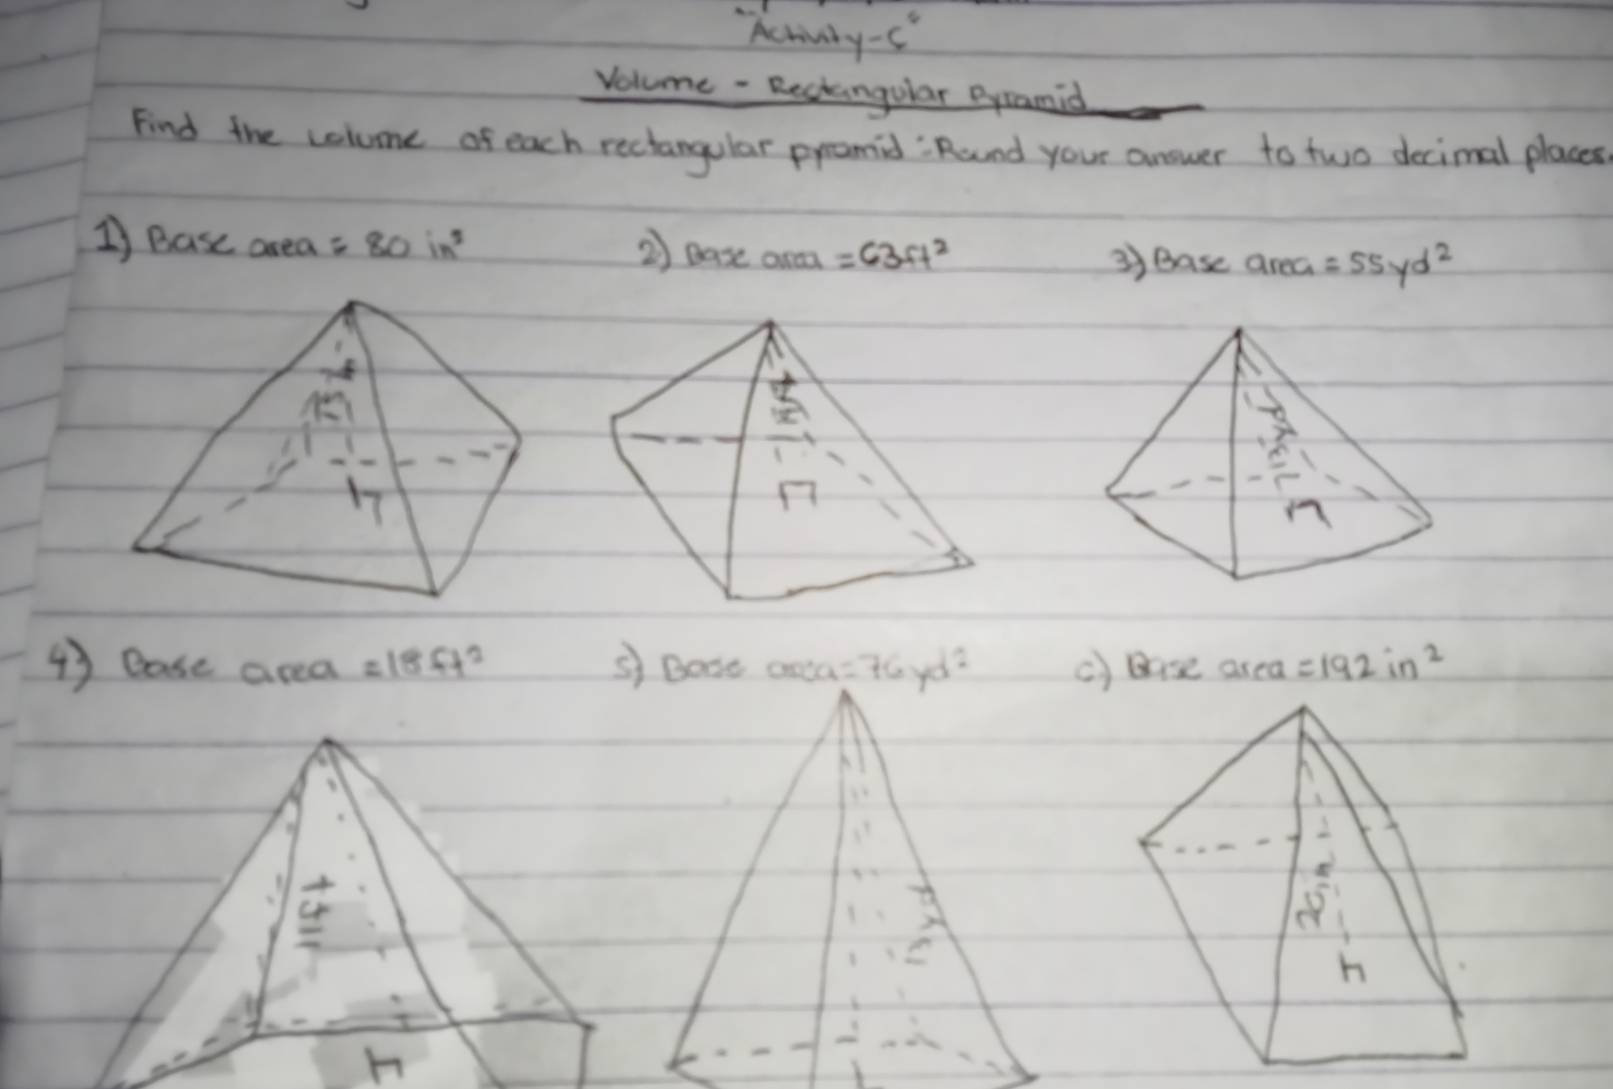 "Activity-6"
Volume - Rectangular Pyramid
Find the volume of each rectangular pyramid. Round your answer to two decimal places.
1) Base area = 80 in²
2) Base area = 63ft²
3) Base area = 55yd²
13yd
4) Base area = 18ft²
11ft
5) Base area = 76yd²
6) Base area = 192 in²
20in